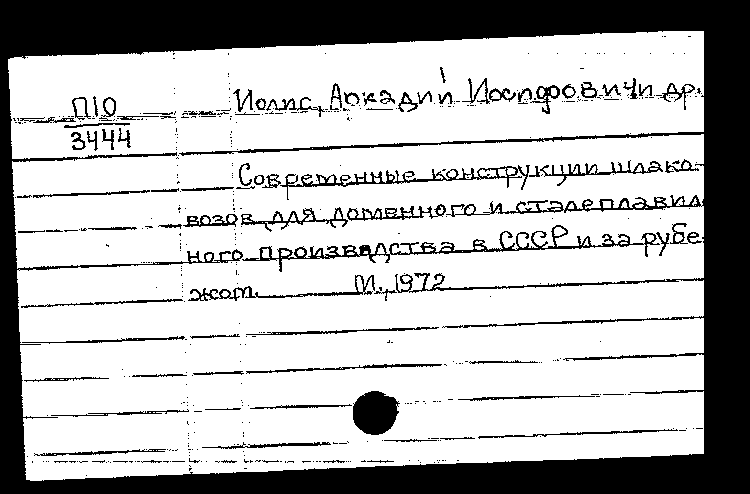 П10
3444
Иолис, Аркадий Иосифович и др.
Современные конструкции шлако-
возов для доменного и сталеплавиль
ного производства в СССР и за рубе-
жом. М., 1972